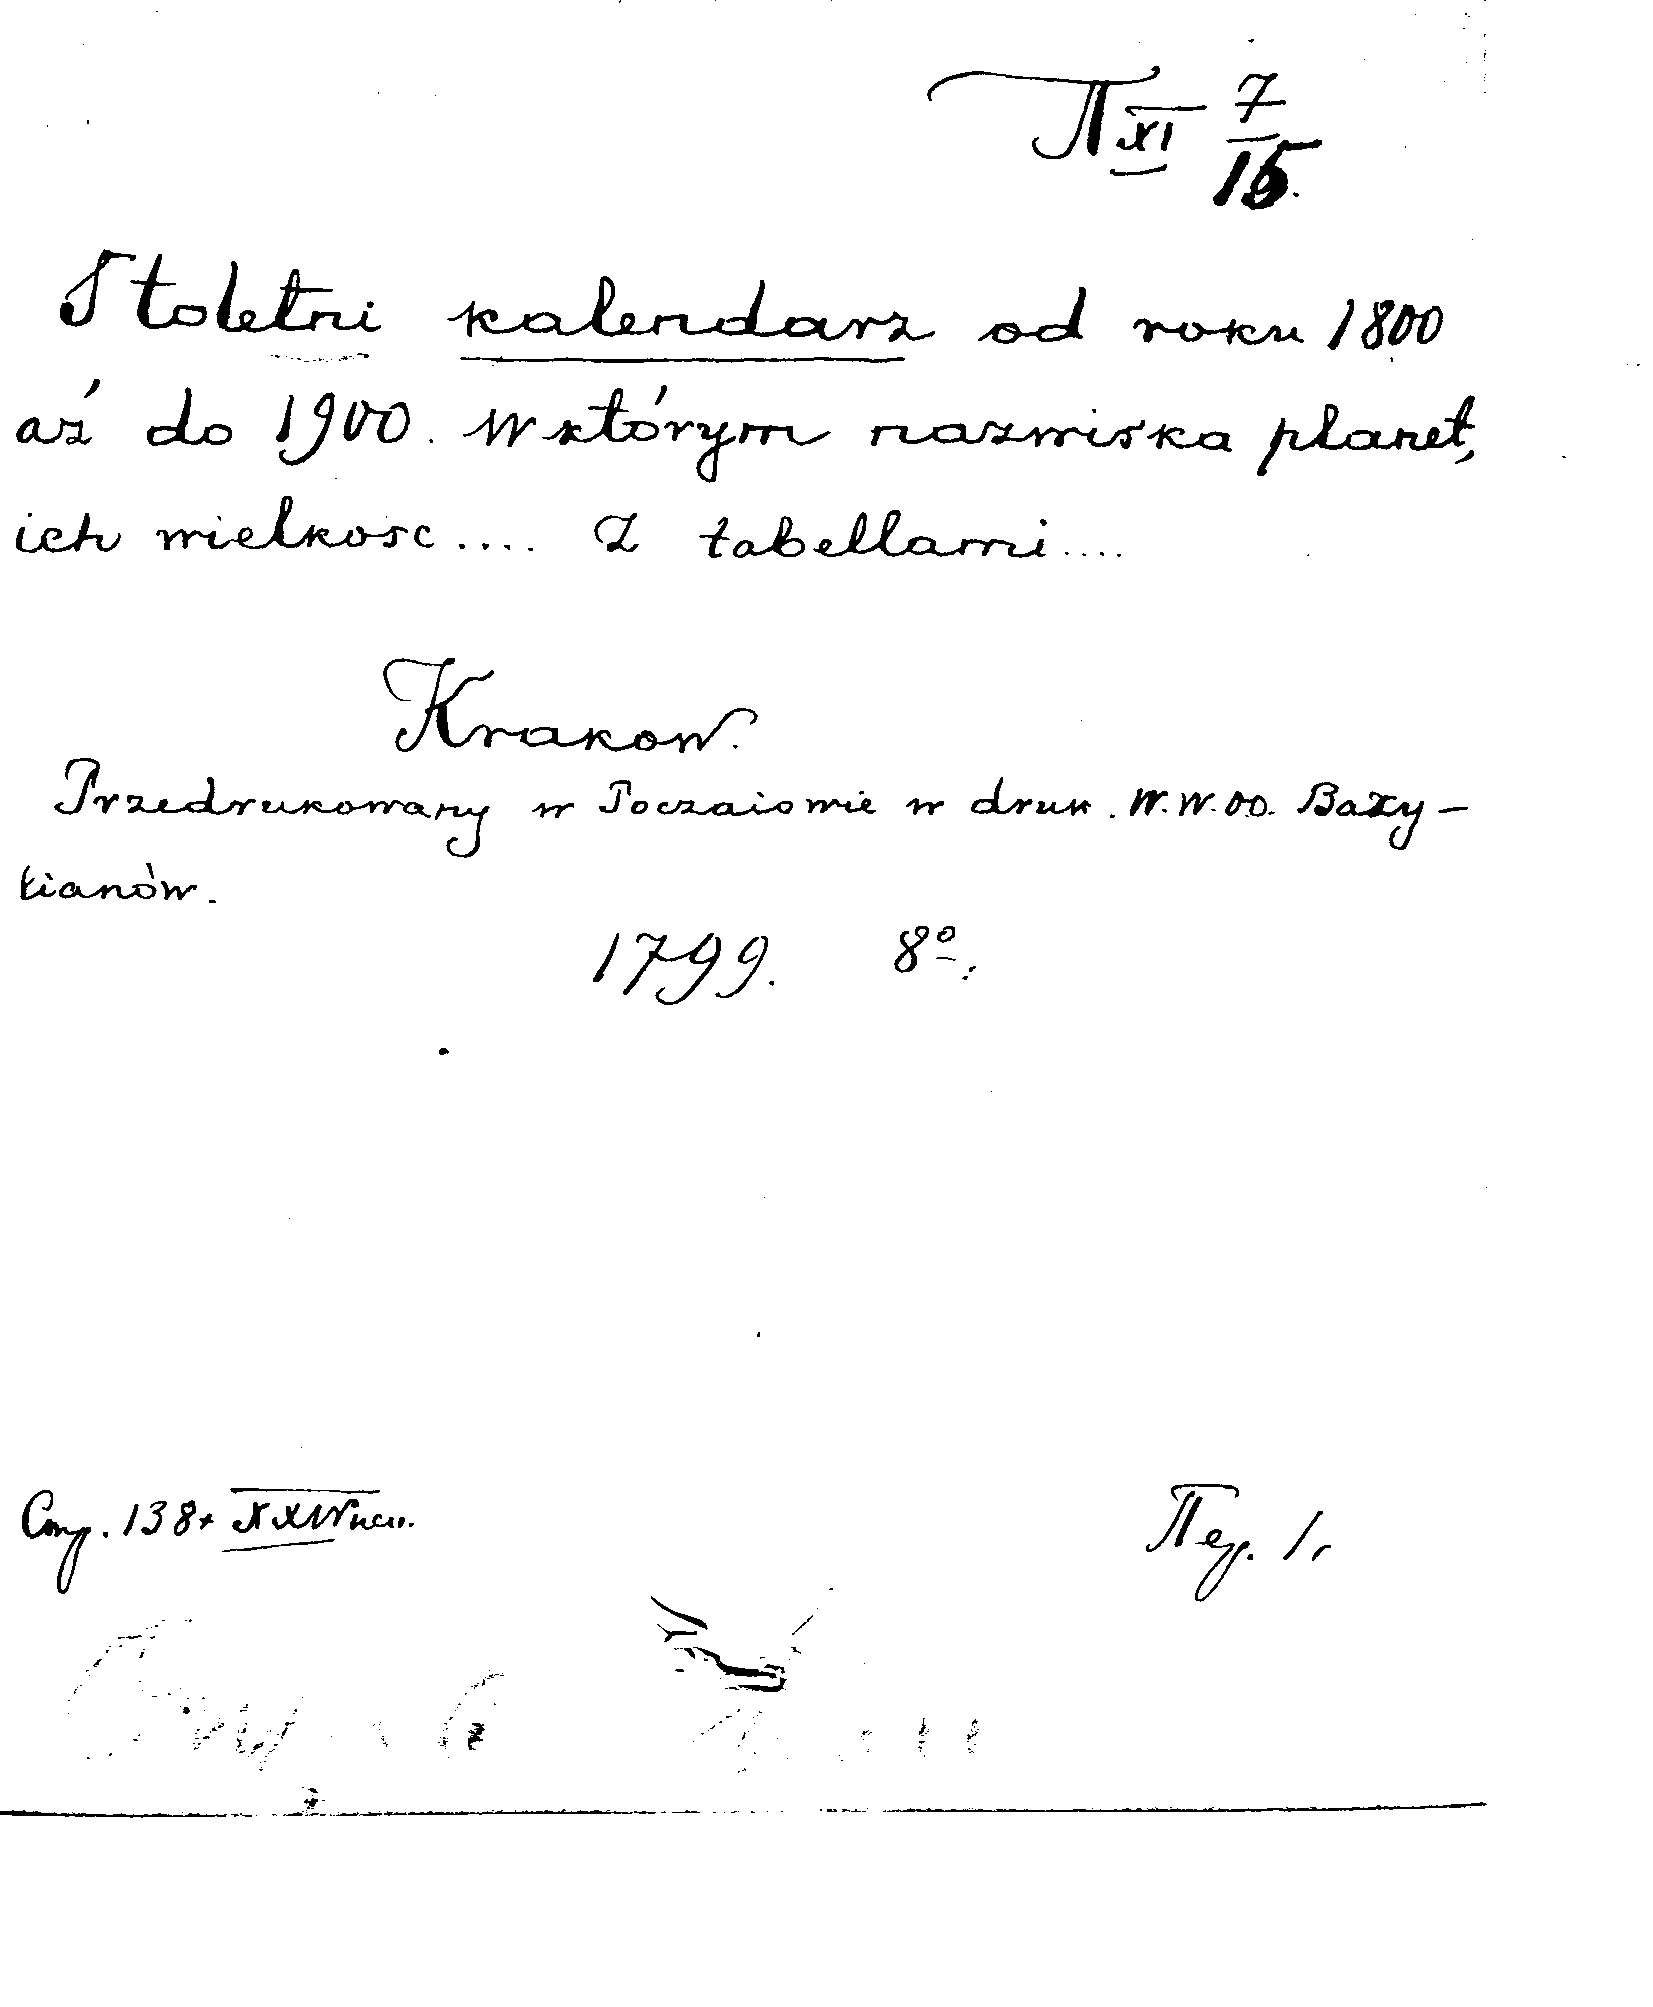 П XI 7/15.
Stoletni kalendarz od roku 1800
aż do 1900. W którym nazwiska planet,
ich wielkosc .... Z tabellami ....
Krakow.
Przedrukowany w Poczaiowie w druk. W.W.OO. Bazy-
lianów.
1799. 8º.
Стр. 138+XXIV
Пер. 1